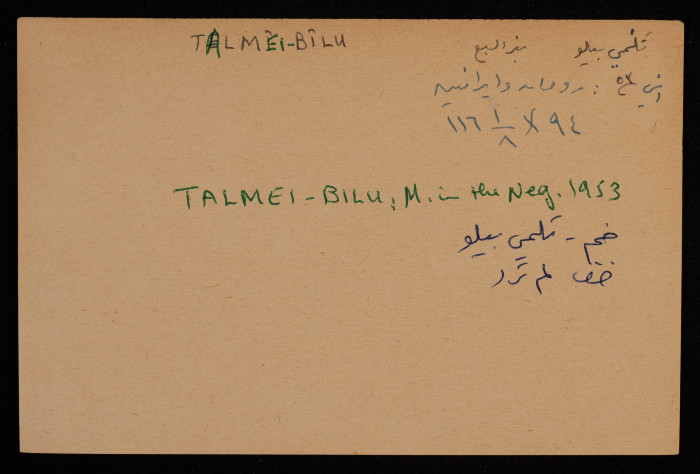 TALMĒI-BĪLU تَلْمي بيلو بئر السبع
رومانيه وايرانيه :
١١٦ ١/٨ X ٩٤
TALMEI-BILU; M. in the Neg. 1953
ضم - تَلمي بيلو
خف لم تَرد